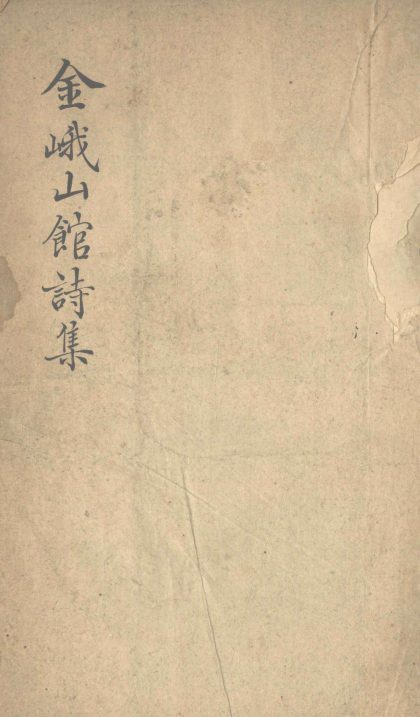 金峨山館詩集